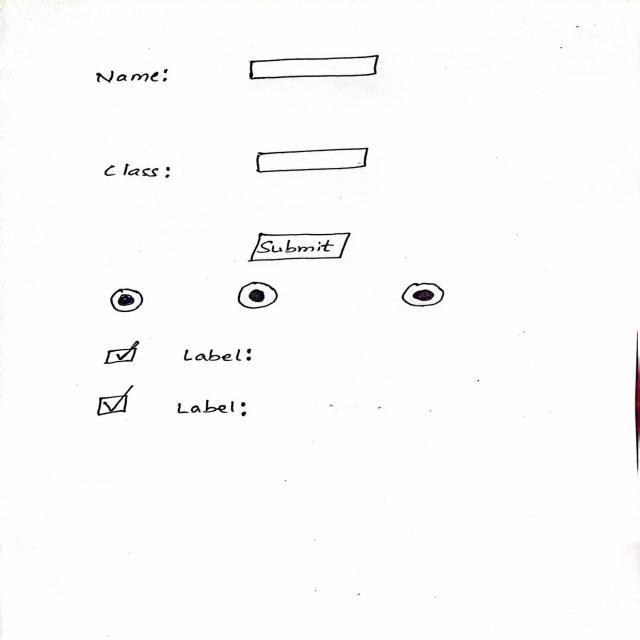 Name:
Class:
Submit
Label:
Label: